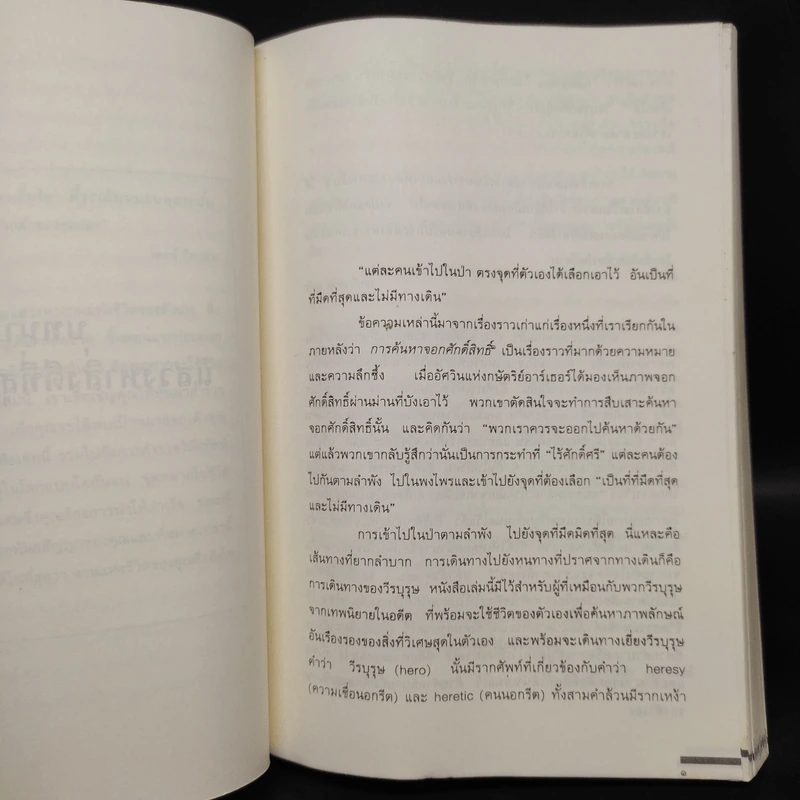 "แต่ละคนเข้าไปในป่า ตรงจุดที่ตัวเองได้เลือกเอาไว้ อันเป็นที่
ที่มืดที่สุดและไม่มีทางเดิน"
ข้อความเหล่านี้มาจากเรื่องราวเก่าแก่เรื่องหนึ่งที่เราเรียกกันใน
ภายหลังว่า การค้นหาจอกศักดิ์สิทธิ์ เป็นเรื่องราวที่มากด้วยความหมาย
และความลึกซึ้ง เมื่ออัศวินแห่งกษัตริย์อาร์เธอร์ได้มองเห็นภาพจอก
ศักดิ์สิทธิ์ผ่านม่านที่บังเอาไว้ พวกเขาตัดสินใจจะทำการสืบเสาะค้นหา
จอกศักดิ์สิทธิ์นั้น และคิดกันว่า "พวกเราควรจะออกไปค้นหาด้วยกัน"
แต่แล้วพวกเขากลับรู้สึกว่านั่นเป็นการกระทำที่ "ไร้ศักดิ์ศรี" แต่ละคนต้อง
ไปกันตามลำพัง ไปในพงไพรและเข้าไปยังจุดที่ต้องเลือก "เป็นที่ที่มืดที่สุด
และไม่มีทางเดิน"
การเข้าไปในป่าตามลำพัง ไปยังจุดที่มืดมิดที่สุด นี่แหละคือ
เส้นทางที่ยากลำบาก การเดินทางไปยังหนทางที่ปราศจากทางเดินก็คือ
การเดินทางของวีรบุรุษ หนังสือเล่มนี้มีไว้สำหรับผู้ที่เหมือนกับพวกวีรบุรุษ
จากเทพนิยายในอดีต ที่พร้อมจะใช้ชีวิตของตัวเองเพื่อค้นหาภาพลักษณ์
อันเรืองรองของสิ่งที่วิเศษสุดในตัวเอง และพร้อมจะเดินทางเยี่ยงวีรบุรุษ
คำว่า วีรบุรุษ (hero) นั้นมีรากศัพท์ที่เกี่ยวข้องกับคำว่า heresy
(ความเชื่อนอกรีต) และ heretic (คนนอกรีต) ทั้งสามคำล้วนมีรากเหง้า
๑